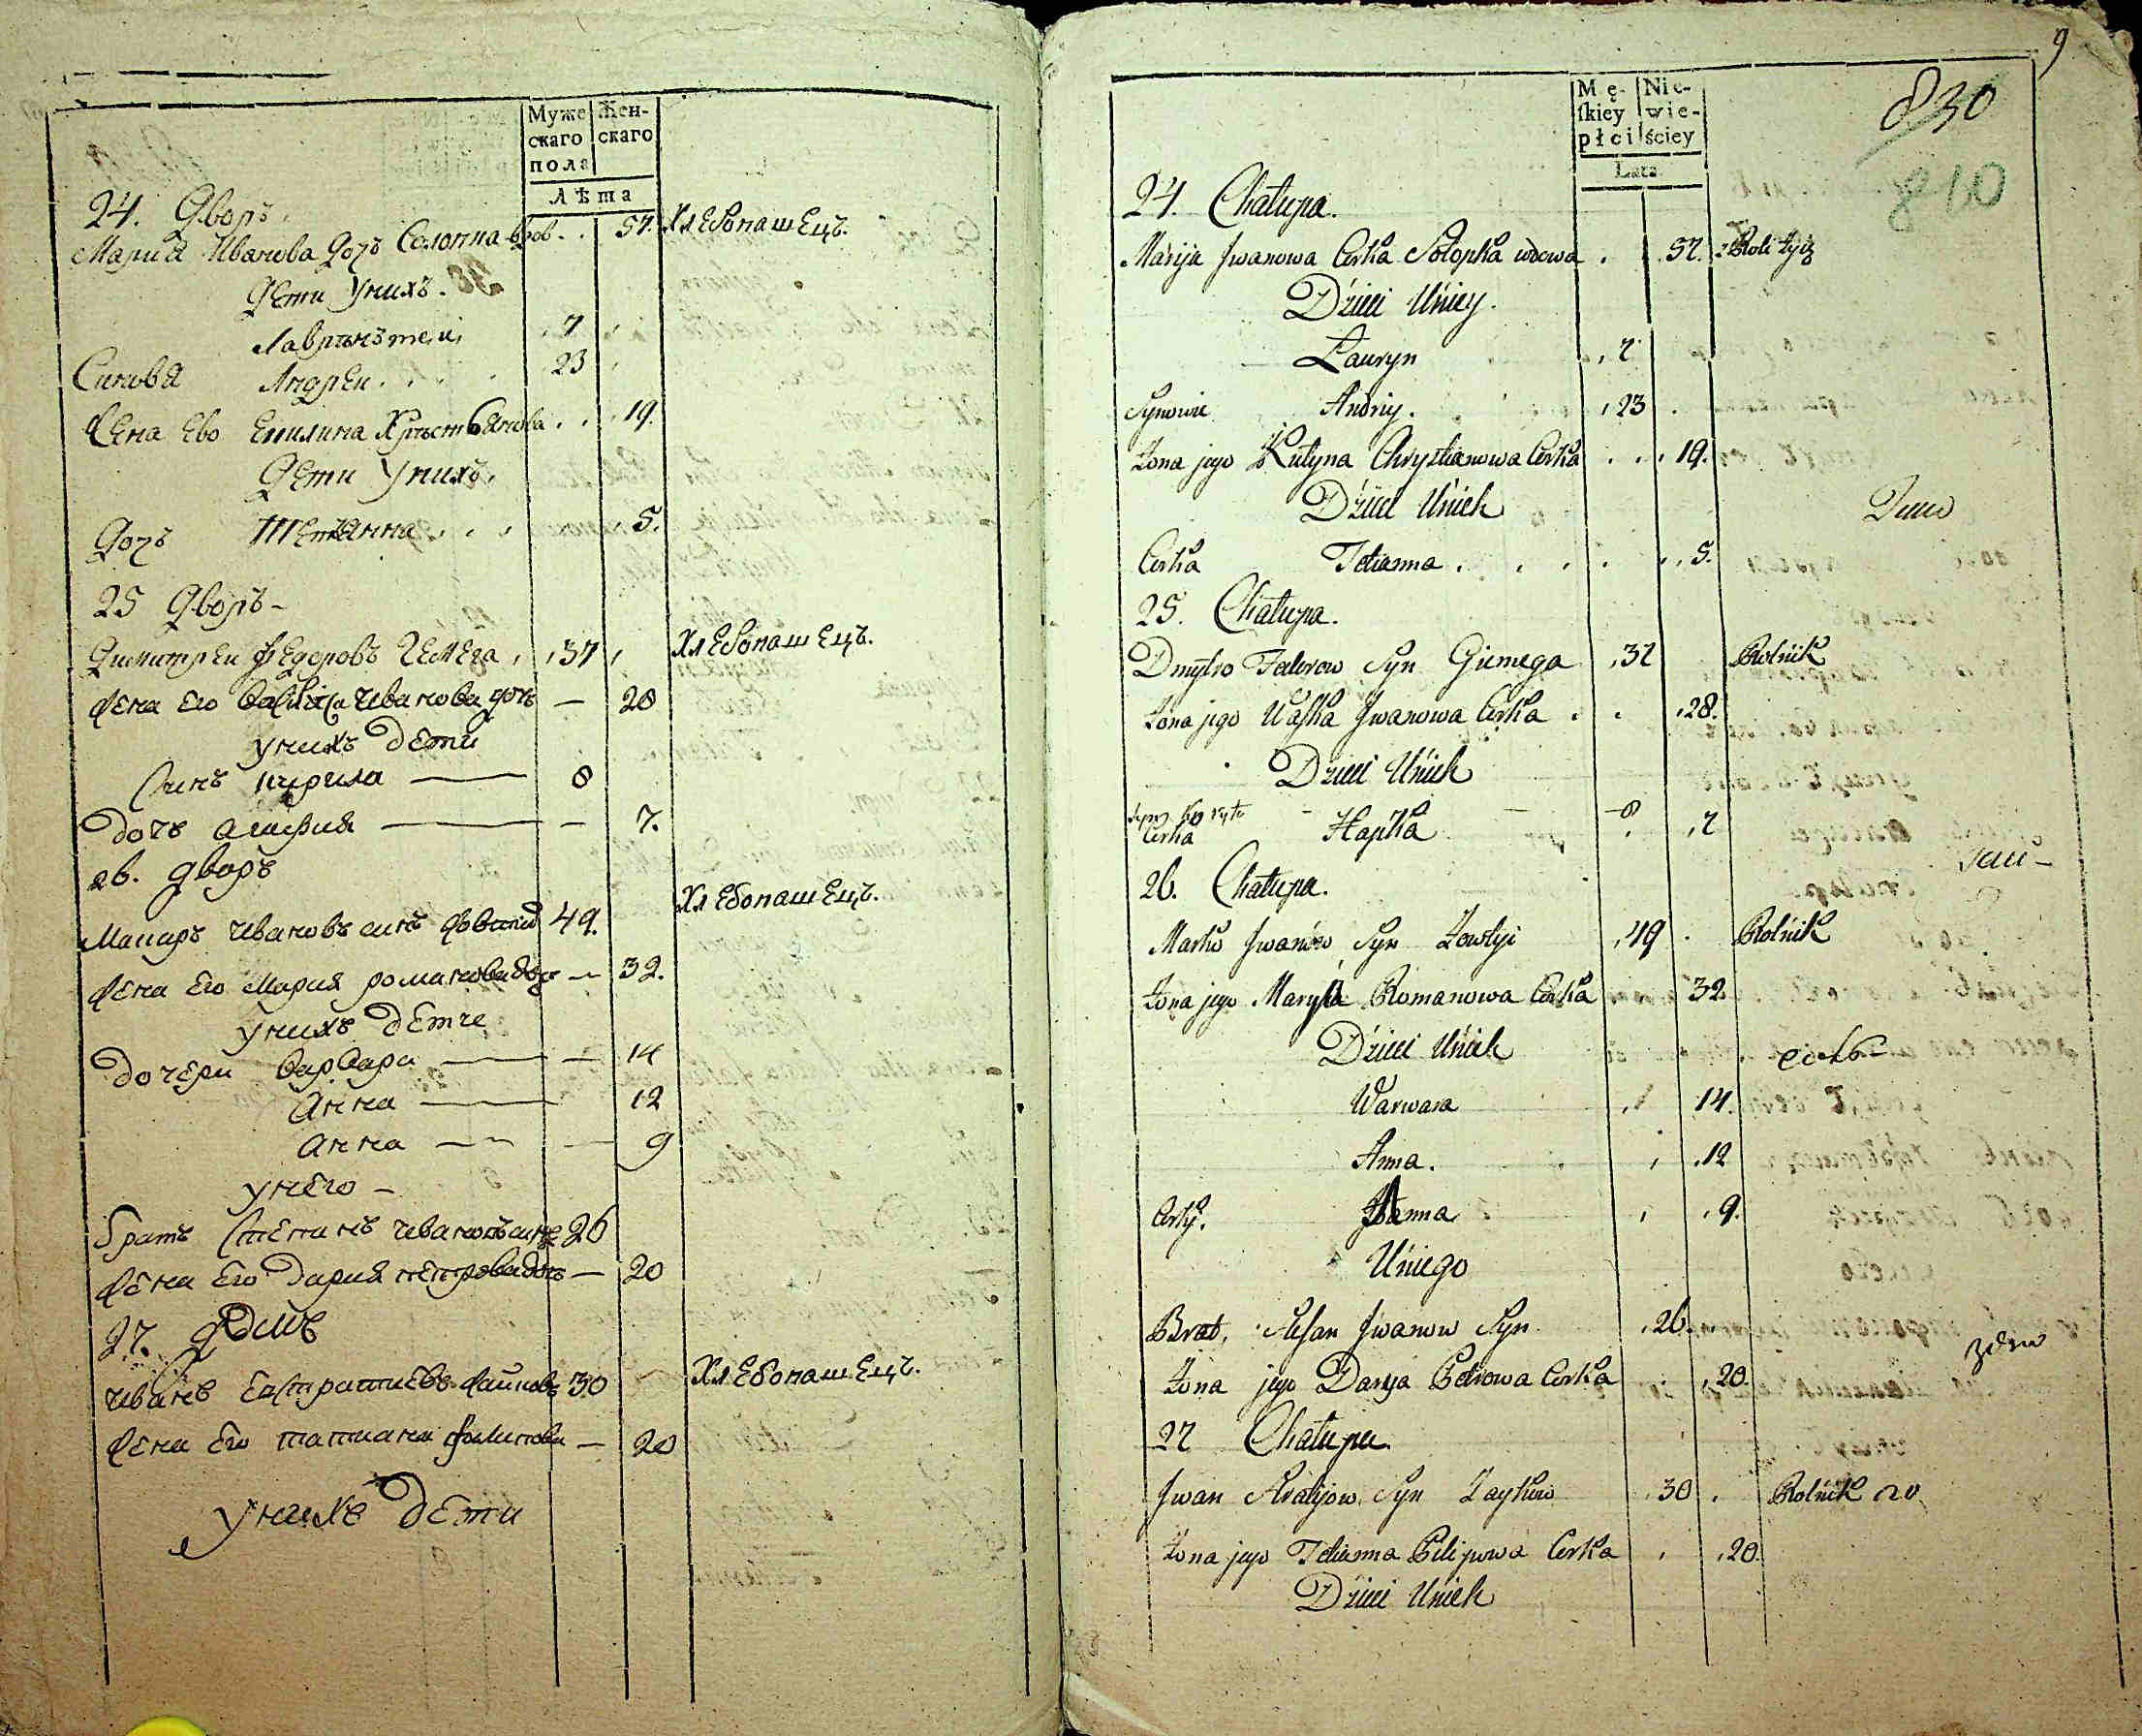 Муже
скаго
пола
Жен-
скаго
Лѣта
24. Дворъ.
Мария Иванова Дочъ Солопка вдов. . 57. Хлебопашецъ.
Дети Унихъ.
7
Синовя Андрей. . . . 23
Жена Ево Християнова . . 19.
Дети Унихъ.
Дочъ Тетянна . . . 5.
25 Дворъ -
Димитрей Федоровъ Гемега 37 Хлебопашецъ.
Жена Его Васка Иванова дочъ — 28
унихъ Дети
Синъ кирила — 8
Дочъ агафия — 7.
26. дворъ
Макаръ Ивановъ синъ 49. Хлебопашецъ.
Жена Его Мария романова дочь — 32.
унихъ Дети
Дочери Варвара — 14
Анна — 12
анна — 9
унего -
братъ Степанъ Ивановъ 26
Жена Его Дария петрова дочъ — 20
27. Дворъ
Иванъ 30 Хлебопашецъ.
Жена Его татиана филипова — 20
унихъ Дети
9
830
810
Mę-
ſkiey
płci
Nie-
wie-
ściey
Lata
24. Chałupa.
Marija Jwanowa Corka Sołopka wdowa . 57. z Roli żyią
Dzieci Uniey.
Ławryn . 7
Synowie Andriy. . 23
Zona jego Chrystianowa Corka . . . 19.
Dzieci Unich
Corka Tetianna . . . . . 5.
25. Chałupa.
Dmytro Fedorow Syn Giemega . 37 Rolnik
Zona jego Waſka Jwanowa Corka . . . 28.
Dzieci Unich
Syn Kiryło — 8
Corka Hapka . 7
26. Chałupa.
Marko Jwanów Syn Zowtyi . 49 . Rolnik
Zona jego Maryia Romanowa Corka 32
Dzieci Unich
Warwara 14.
Anna. . 12
Corky. Hanna . 9.
Uniego
Brat, Stefan Jwanow Syn . 26.
Zona jego Darya Petrowa Corka . 20.
27 Chałupa.
Jwan Syn Zaykow 30 . Rolnik
Zona jego Tetianna Pilipowa Corka . 20.
Dzieci Unich